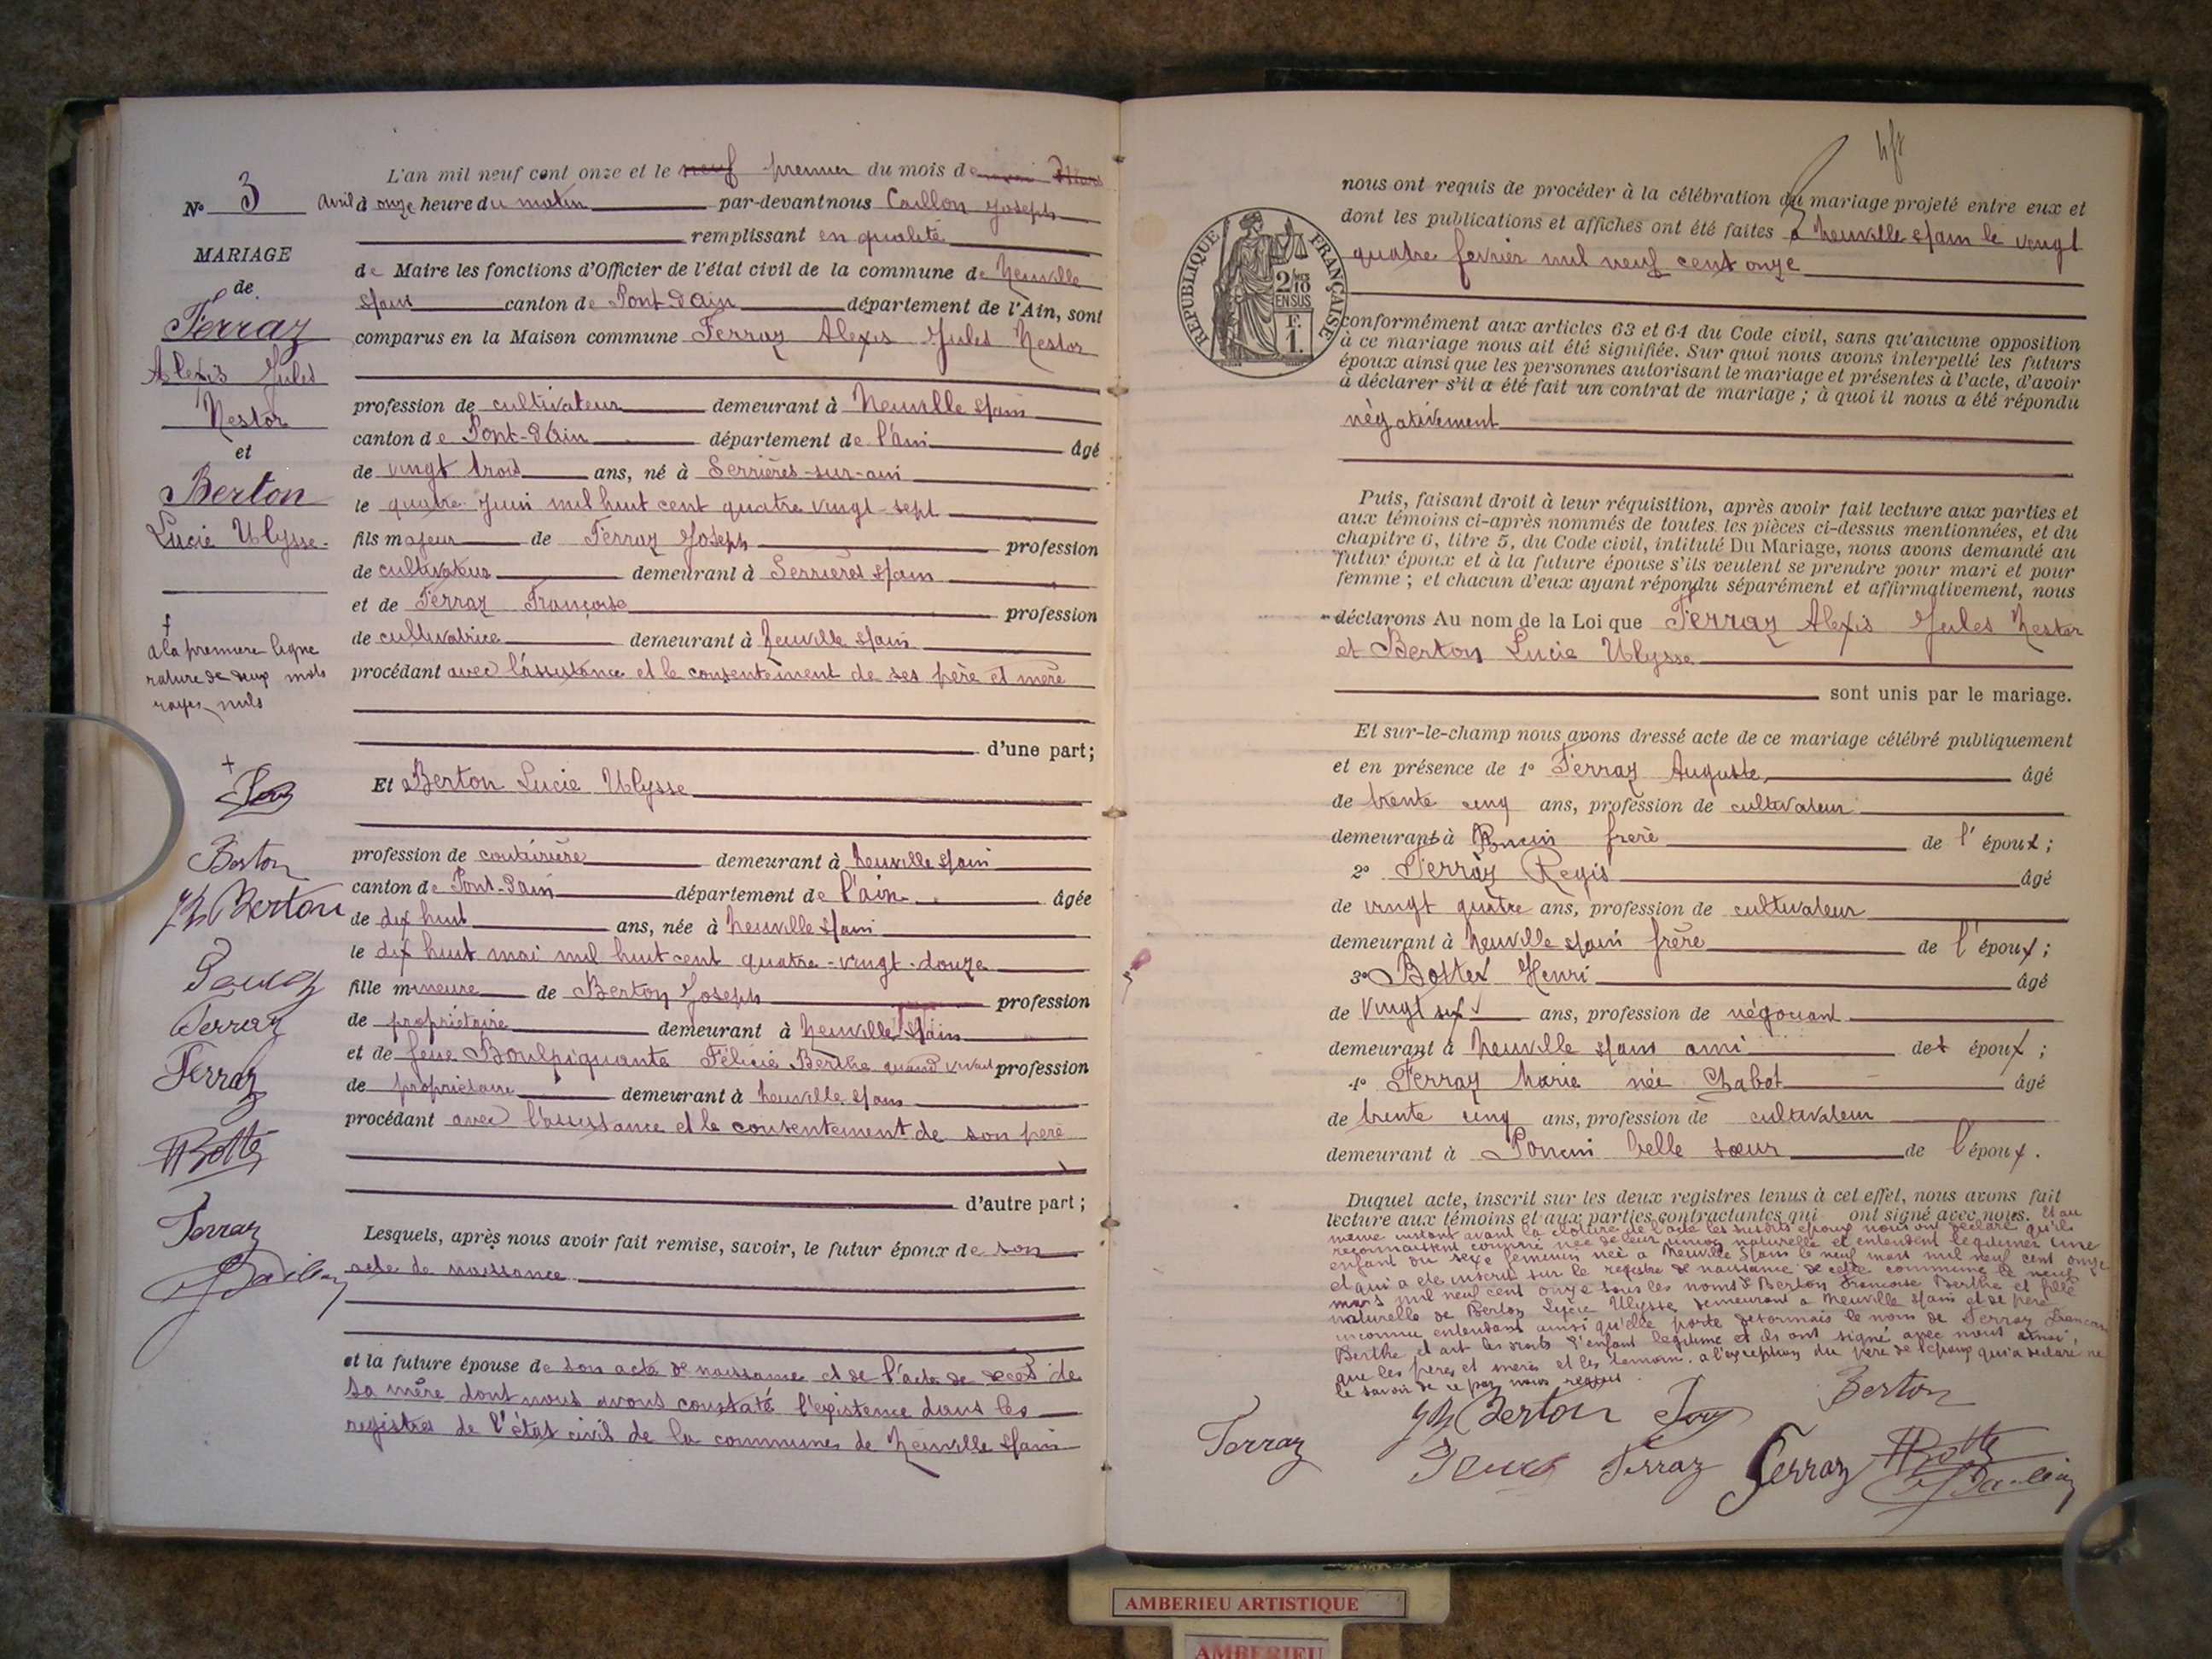 L'an mil neuf cent onze et le neuf premier du mois de mars
N° 3 avril à onze heure du matin par-devant nous Caillon Joseph
remplissant en qualité
MARIAGE
de Maire les fonctions d'Officier de l'état civil de la commune de Neuville
de
s/ain canton de Pont-d'Ain département de l'Ain, sont
Ferraz
comparus en la Maison commune Ferraz Alexis Jules Nestor
Alexis Jules
Nestor
profession de cultivateur demeurant à Neuville s/ain
canton de Pont-d'Ain département de l'ain âgé
et
de vingt trois ans, né à Serrières-sur-ain
Berton
le quatre juin mil huit cent quatre vingt-sept
Lucie Ulysse
fils majeur de Ferraz Joseph profession
de cultivateur demeurant à Serrières s/ain
et de Ferraz Françoise profession
de cultivatrice demeurant à Neuville s/ain
a la premiere ligne
rature de deux mots
rayés nuls
procédant avec l'assistance et le consentement de ses père et mère
d'une part;
Et Berton Lucie Ulysse
profession de couturière demeurant à Neuville s/ain
canton de Pont-d'ain département de l'ain âgée
de dix huit ans, née à Neuville s/ain
le dix huit mai mil huit cent quatre-vingt-douze
fille mineure de Berton Joseph profession
de propriétaire demeurant à Neuville s/ain
et de feue Boulpiquante Félicie Berthe quand vivait profession
de propriétaire demeurant à Neuville s/ain
procédant avec l'assistance et le consentement de son père
d'autre part;
Lesquels, après nous avoir fait remise, savoir, le futur époux de son
acte de naissance
et la future épouse de son acte de naissance et de l'acte de décès de
sa mère dont nous avons constaté l'existence dans les
registres de l'état civil de la commune de Neuville s/ain
Berton
Jh Berton
Ferraz
Ferraz
HBotte
Ferraz
nous ont requis de procéder à la célébration du mariage projeté entre eux et
dont les publications et affiches ont été faites à Neuville s/ain le vingt
quatre fevrier mil neuf cent onze
REPUBLIQUE FRANÇAISE
2/10 EN SUS
F. 1.
conformément aux articles 63 et 64 du Code civil, sans qu'aucune opposition
à ce mariage nous ait été signifiée. Sur quoi nous avons interpellé les futurs
époux ainsi que les personnes autorisant le mariage et présentes à l'acte, d'avoir
à déclarer s'il a été fait un contrat de mariage ; à quoi il nous a été répondu
négativement
Puis, faisant droit à leur réquisition, après avoir fait lecture aux parties et
aux témoins ci-après nommés de toutes les pièces ci-dessus mentionnées, et du
chapitre 6, titre 5, du Code civil, intitulé Du Mariage, nous avons demandé au
futur époux et à la future épouse s'ils veulent se prendre pour mari et pour
femme ; et chacun d'eux ayant répondu séparément et affirmativement, nous
déclarons Au nom de la Loi que Ferraz Alexis Jules Nestor
et Berton Lucie Ulysse
sont unis par le mariage.
Et sur-le-champ nous avons dressé acte de ce mariage célébré publiquement
et en présence de 1° Ferraz Auguste âgé
de trente cinq ans, profession de cultivateur
demeurant à Poncin frère de l'époux ;
2° Ferraz Regis âgé
de vingt quatre ans, profession de cultivateur
demeurant à Neuville s/ain frère de l'époux ;
3° Bottex Henri âgé
de vingt six ans, profession de négociant
demeurant à Neuville s/ain ami des époux ;
4° Ferraz Marie née Chabot âgé
de trente cinq ans, profession de cultivateur
demeurant à Poncin belle sœur de l'époux.
Duquel acte, inscrit sur les deux registres tenus à cet effet, nous avons fait
lecture aux témoins et aux parties contractantes qui ont signé avec nous. Et au
même instant avant la cloture de l'acte les susdits epoux nous ont déclaré qu'ils
reconnaissent comme née de leur union naturelle et entendent legitimer une
enfant du sexe feminin née a Neuville s/ain le neuf mars mil neuf cent onze
et qui a été inscrit sur le registre de naissance de cette commune le neuf
mars mil neuf cent onze sous les noms de Berton Francoise Berthe et fille
naturelle de Berton Lucie Ulysse demeurant a Neuville s/ain et de père
inconnu entendant ainsi qu'elle porte désormais le nom de Ferraz
Berthe et ait les droits d'enfant legitime et ils ont signé avec nous ainsi
que les peres et mères et les temoins a l'exception du père de l'époux qui a déclaré ne
le savoir de ce par nous requis
Jh Berton Berton
Ferraz Ferraz Ferraz HBotte
AMBERIEU ARTISTIQUE
AMBERIEU